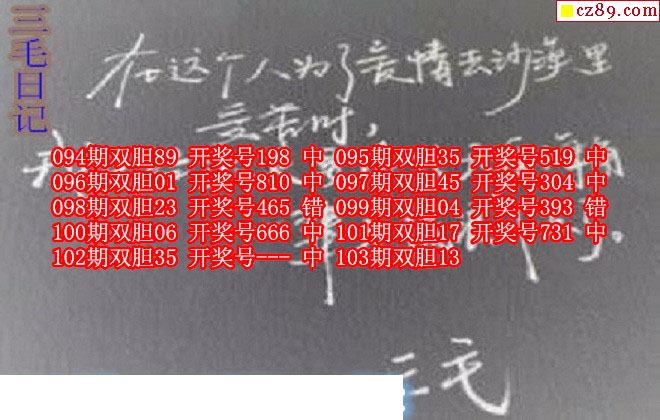 cz89.com
三毛日记
在这个人为了爱情去沙漠里
受苦时，
094期双胆89 开奖号198 中 095期双胆35 开奖号519 中
096期双胆01 开奖号810 中 097期双胆45 开奖号304 中
098期双胆23 开奖号465 错 099期双胆04 开奖号393 错
100期双胆06 开奖号666 中 101期双胆17 开奖号731 中
102期双胆35 开奖号--- 中 103期双胆13
三毛